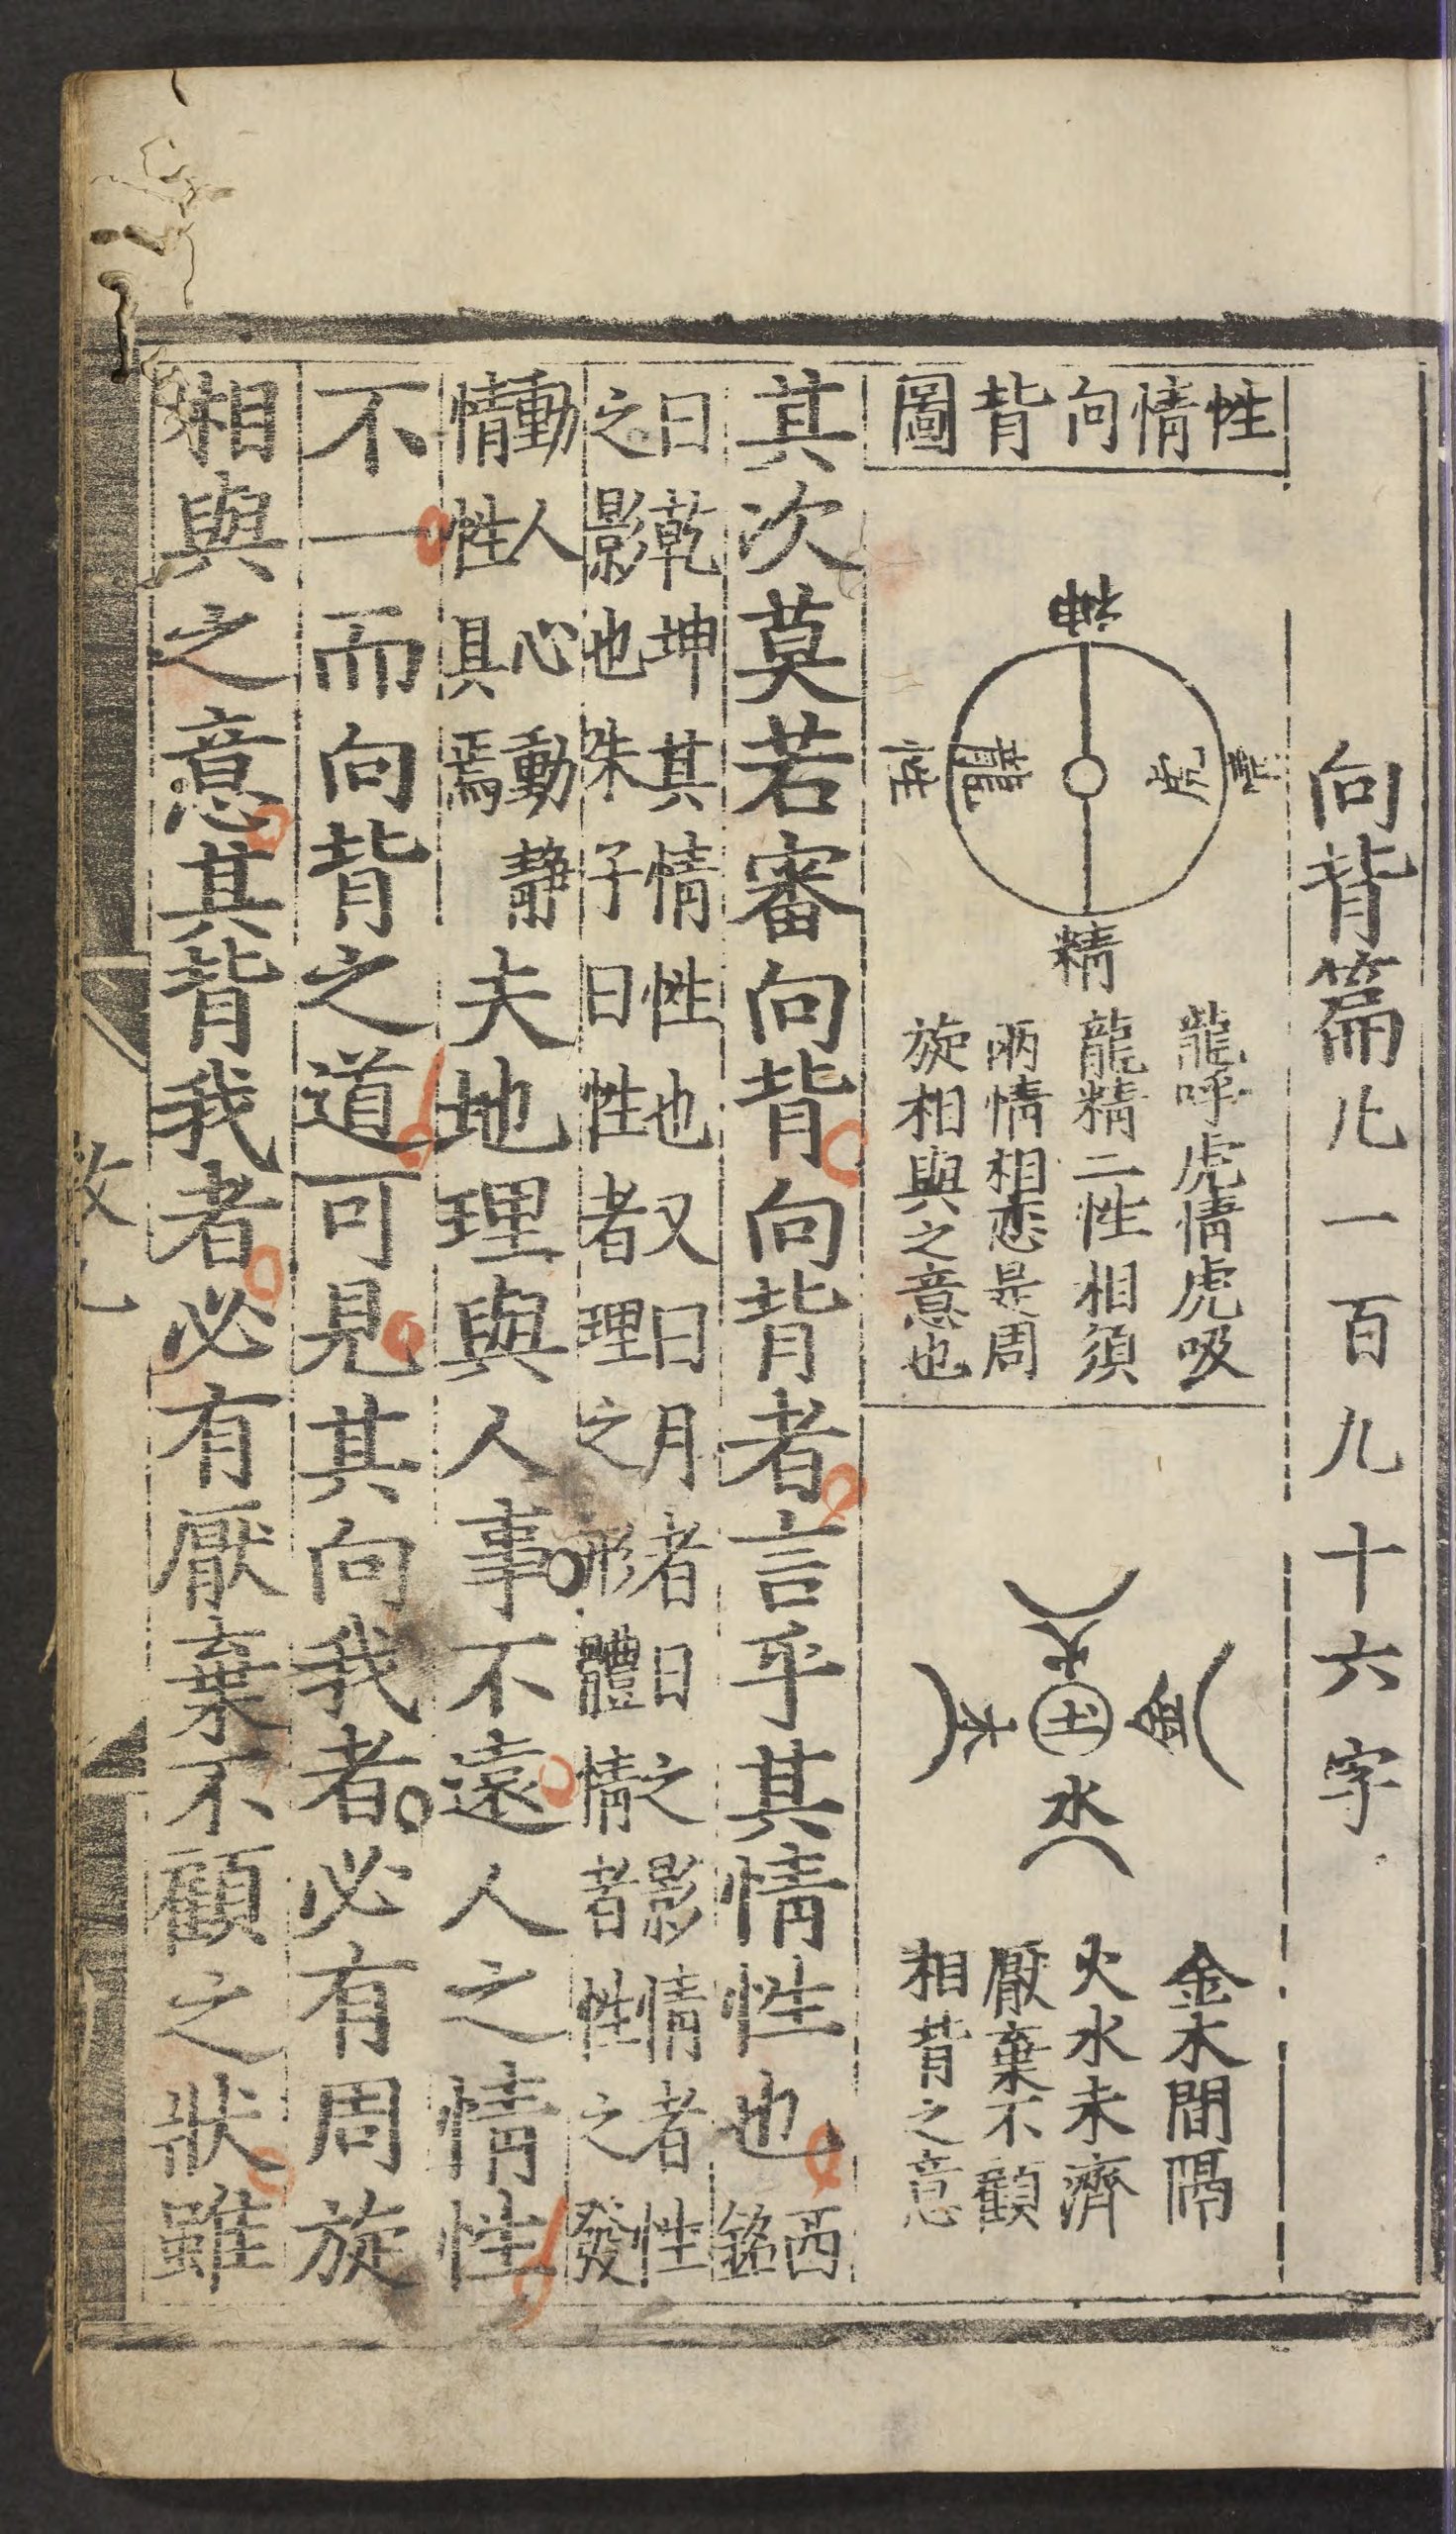 向背篇凡一百九十六字
性情向背圖
精
龍呼虎情虎吸
龍精二性相須
兩情相戀是周
旋相與之意也
火
金
土
木
水
金木間隔
火水未濟
厭棄不顧
相背之意
其次莫若審向背向背者言乎其情性也西銘
曰乾坤其情性也又曰月者日之影情者性
之影也朱子曰性者理之形體情者性之發
動人心動靜
情性具焉
夫地理與人事不遠人之情性
不一而向背之道可見其向我者必有周旋
相與之意其背我者必有厭棄不顧之狀雖